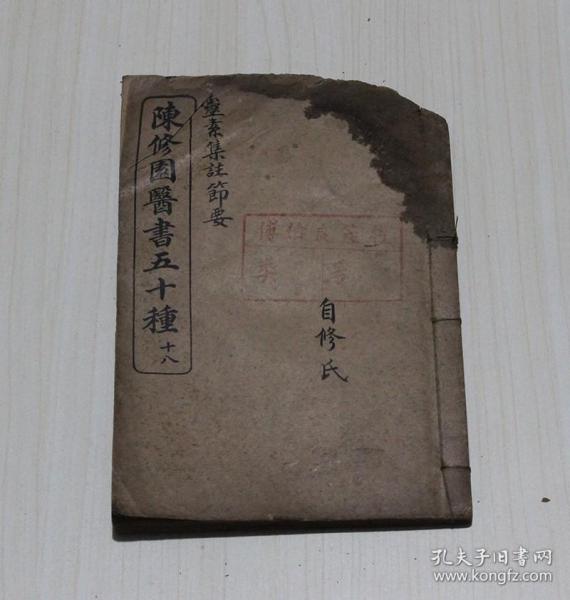 陳修園醫書五十種 十八
靈素集註節要
自修氏
孔夫子旧书网
www.kongfz.com